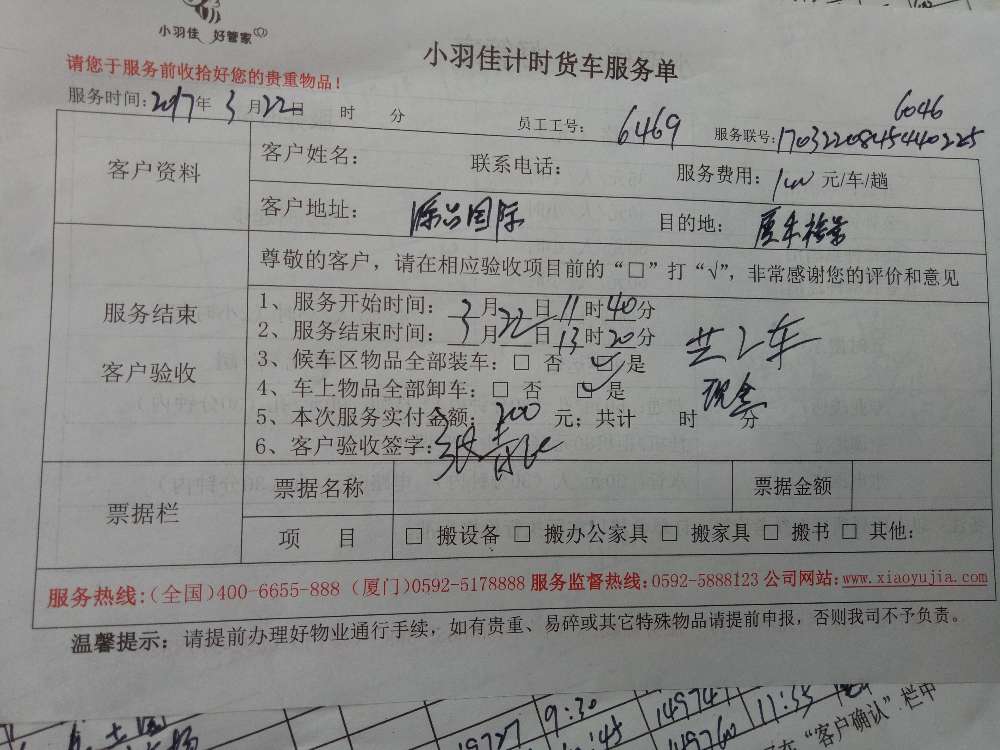 小羽佳 好管家
小羽佳计时货车服务单
请您于服务前收拾好您的贵重物品！
服务时间: 2017年 3月22日 时 分
员工工号: 6469
6046
服务联号: 17032208454440225
客户资料
客户姓名: 联系电话: 服务费用: 100 元/车/趟
客户地址: 国际 目的地:
尊敬的客户，请在相应验收项目前的“□”打“√”，非常感谢您的评价和意见
服务结束
客户验收
1、服务开始时间: 3月22日11时40分
2、服务结束时间: 3月22日13时20分
共2车
3、候车区物品全部装车: □ 否 ☑ 是
4、车上物品全部卸车: □ 否 ☑ 是
现金
5、本次服务实付金额: 200 元; 共计 时 分
6、客户验收签字:
票据栏
票据名称 票据金额
项 目 □ 搬设备 □ 搬办公家具 □ 搬家具 □ 搬书 □ 其他:
服务热线:(全国)400-6655-888 (厦门)0592-5178888 服务监督热线:0592-5888123 公司网站:www.xiaoyujia.com
温馨提示: 请提前办理好物业通行手续，如有贵重、易碎或其它特殊物品请提前申报，否则我司不予负责。
19727 9:30 14974 11:55
“客户确认”栏中